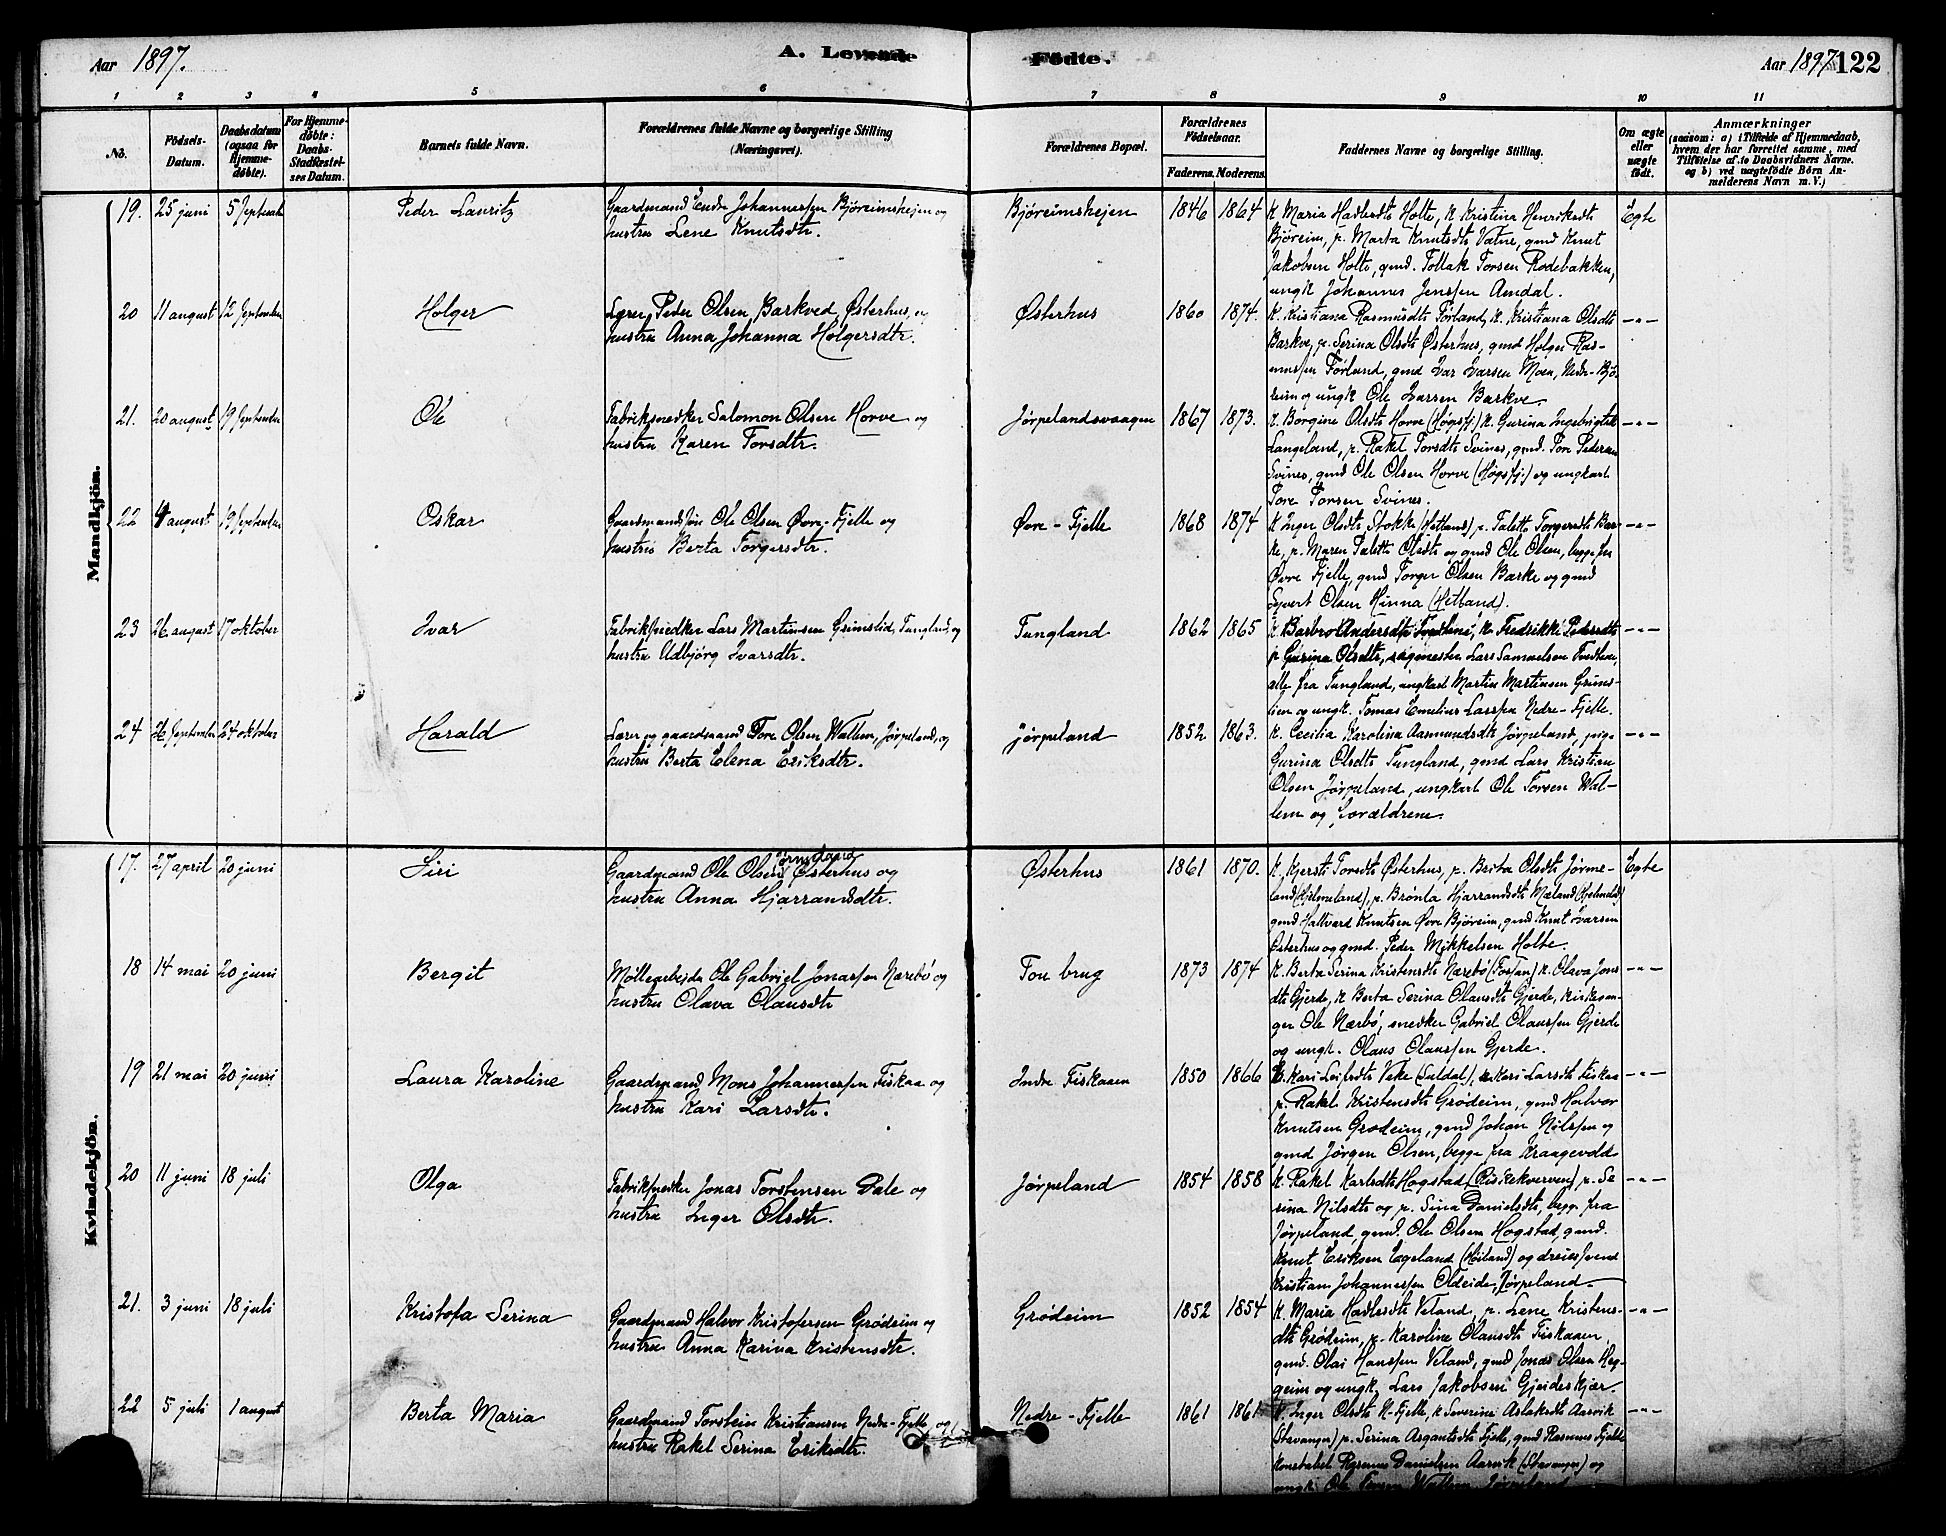 Aar 1897.
A. Levende Födte.
Aar 1897
122
1 2 3 4 5 6 7 8 9 10 11
No.
Födsels-
Datum.
Daabsdatum
(ogsaa for
Hjemme-
döbte).
For Hjemme-
döbte:
Daabs-
Stadfæstel-
ses Datum.
Barnets fulde Navn.
Forældrenes fulde Navne og borgerlige Stilling
(Næringsvei).
Forældrenes Bopæl.
Forældrenes
Födselsaar.
Faderens. Moderens.
Faddernes Navne og borgerlige Stilling.
Om ægte
eller
uægte
födt.
Anmærkninger
(saasom: a) i Tilfælde af Hjemmedaab,
hvem der har forrettet samme, med
Tilföielse af to Daabsvidners Navne.
og b) ved uægtefödte Börn An-
melderens Navn m. V.)
Mandkjön.
19. 25 juni 5 September Peder Lauritz
Gaardmand Endre Johannessen Bjøreimshejen og
hustru Lene Knutsdtr.
Bjøreimshejen 1846 1864
K Maria Hadlesdtr Holte, K Kristina Henriksdtr
Bjøreim, p. Marta Knutsdtr Vatne, gmd Knut
Jakobsen Holte, gmd. Tollak Torsen Rodebakken,
ungk Johannes Jenssen Amdal.
Egte
20 11 august 12 September Holger
Lærer Peder Olsen Barkved, Østerhus, og
hustru Anna Johanna Holgersdtr.
Østerhus 1860 1874.
K. Kristiana Rasmusdtr Førland, K. Kristiana Olsdtr
Barkve, p. Serina Olsdtr Østerhus, gmd Holger Ras-
mussen Førland, gmd Ivar Larsen Moen, Nedre-Bjø-
reim og ungk Ole Larsen Barkve.
-"-
21. 20 august 19 September Ole
Fabriksnedker Salomon Olsen Horve og
hustru Karen Torsdtr.
Jørpelandsvaagen 1867 1873.
K. Borgine Olsdtr Horve (Høgsfj.) K. Gurina Ingebrigtsdtr
Langeland, p. Rakel Torsdtr Svines, gmd. Tore Pedersen
Svines, gmd Ole Olsen Horve (Høgsfj.) og ungkarl
Tore Torsen Svines.
-"-
22 4 august 19 September Oskar
Gaardmandssøn Ole Olsen Øvre-Fjelle og
hustru Berta Torgersdtr.
Øvre-Fjelle 1868 1874
K Inger Olsdtr Stokke (Hetland), p. Talette Torgersdtr Bar-
ke, p. Maren Talette Olsdtr og gmd Ole Olsen, begge fra
Øvre Fjelle, gmd Torger Olsen Barke og gmd
Syvert Olsen Hinna (Hetland).
-"-
23 26 august 17 oktober Ivar
Fabriksnedker Lars Martinsen Grimslid, Tungland, og
hustru Udbjørg Ivarsdtr.
Tungland 1862 1865
K. Barbro Andersdtr Tveithene, K. Fredrikke Pedersdtr
p Gurina Olsdtr, sagmester Lars Samuelsen Tveithene,
alle fra Tungland, ungkarl Martin Martinsen Grims-
lien og ungk. Tomas Emelius Larssen Nedre-Fjelle.
-"-
24 26 September 24 oktober Harald
Lærer og gaardmand Tore Olsen Wallem, Jørpeland, og
hustru Berta Elena Eriksdtr.
Jørpeland 1852 1863.
K. Cecilia Karolina Aasmundsdtr Jørpeland, pige
Gurina Olsdtr Tungland, gmd Lars Kristian
Olsen Jørpeland, ungkarl Ole Torsen Wal-
lem og forældrene.
-"-
Kvindekjön.
17. 27 april 20 juni Siri
Gaardmand Ole Olsen Østerhus og
hustru Anna Hjarrandsdtr.
Østerhus 1861 1870.
K. Kjersti Torsdtr Østerhus, p. Brita Olsdtr Jørme-
land (Hjelmeland), p. Brønla Hjarrandsdtr Mæland (Hjelmeland)
gmd Hallvard Knutsen Øvre Bjøreim, gmd Knut Ivarsen
Østerhus og gmd. Peder Mikkelsen Holte.
Egte
18 14 mai 20 juni Bergit
Møllearbeider Ole Gabriel Jonassen Nærebø og
hustru Olava Olausdtr
Tou brug 1873 1874
K. Berta Serina Kristensdtr Nærebø (Fossan) K. Olava Jons-
dtr Gjerde, K Berta Serina Olausdtr Gjerde, kirkesan-
ger Ole Nærbø, snedker Gabriel Olaussen Gjerde
og ungk. Olaus Olaussen Gjerde.
-"-
19 21 mai 20 juni Laura Karoline
Gaardmand Mons Johannessen Fiskaa og
hustru Kari Larsdtr.
Indre Fiskaaen 1850 1866
K. Kari Leifsdtr Veke (Suldal), K Kari Larsdtr Fiskaa
p. Rakel Kristensdtr Grødeim, gmd Halvor
Knutsen Grødeim, gmd Johan Nilssen og
gmd Jørgen Olsen, begge fra Kraagevold
-"-
20 11 juni 18 juli Olga
Fabriksnedker Jonas Torstensen Dale og
hustru Inger Olsdtr.
Jørpeland 1854 1858
K. Rakel Karlsdtr Hogstad (Riskekverven) p. Se-
rina Nilsdtr og p. Sina Danielsdtr, begge fra
Jørpeland, gmd. Ole Olsen Hogstad, gmd.
Knut Eriksen Egeland (Høiland) og dreiersvend
Kristian Johannessen Oldeide, Jørpeland.
-"-
21. 3 juni 18 juli Kristofa Serina
Gaardmand Halvor Kristofersen Grødeim og
hustru Anna Karina Kristensdtr.
Grødeim 1852 1854
K. Maria Hadlesdtr Veland, p. Lene Kristens-
dtr Grødeim, p. Karoline Olausdtr Fiskaaen,
gmd. Olai Hanssen Veland, gmd Jonas Olsen Heg-
geim og ungk. Lars Jakobsen Gjeideskjær.
-"-
22 5 juli 1 august Berta Maria
Gaardmand Torstein Kristiansen Nedre-Fjelle og
hustru Rakel Serina Eriksdtr.
Nedre-Fjelle 1861 1861
K. Inger Olsdtr N-Fjelle, K Severine Aslaksdtr Aarvik
(Stavanger) p. Serina Asgautsdtr Fjelle, gmd Rasmus Fjelle
konstabel Rasmus Danielsen Aarvik (Stavanger) og
ungk. Ole Torsen Wallem Jørpeland
-"-